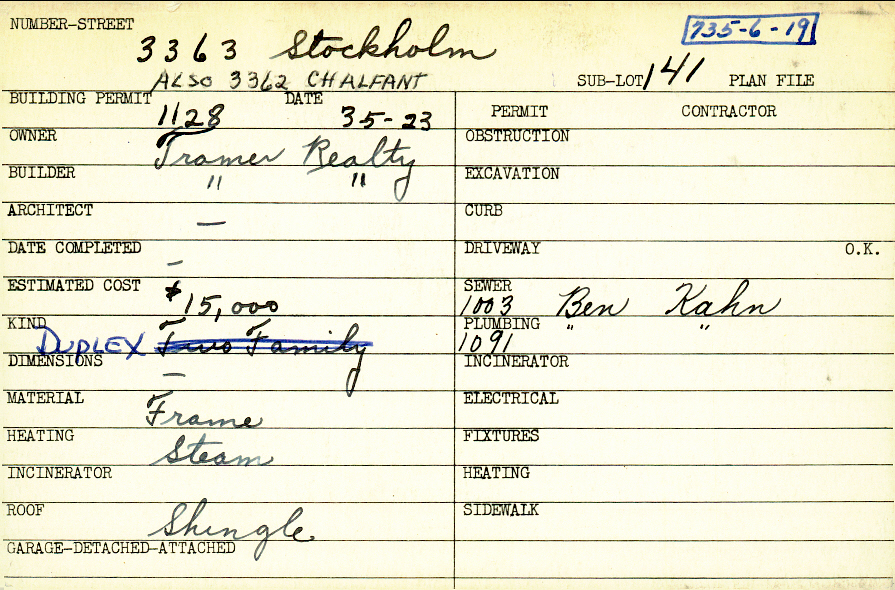 NUMBER-STREET 3363 Stockholm 735-6-19
ALSO 3362 CHALFANT SUB-LOT 141 PLAN FILE
BUILDING PERMIT 1128 DATE 3-5-23
PERMIT CONTRACTOR
OWNER Tramer Realty
OBSTRUCTION
BUILDER " "
EXCAVATION
ARCHITECT —
CURB
DATE COMPLETED –
DRIVEWAY O.K.
ESTIMATED COST $15,000
SEWER 1003 Ben Kahn
KIND DUPLEX Two Family
PLUMBING 1091 " "
DIMENSIONS —
INCINERATOR
MATERIAL Frame
ELECTRICAL
HEATING Steam
FIXTURES
INCINERATOR
HEATING
ROOF Shingle
SIDEWALK
GARAGE-DETACHED-ATTACHED